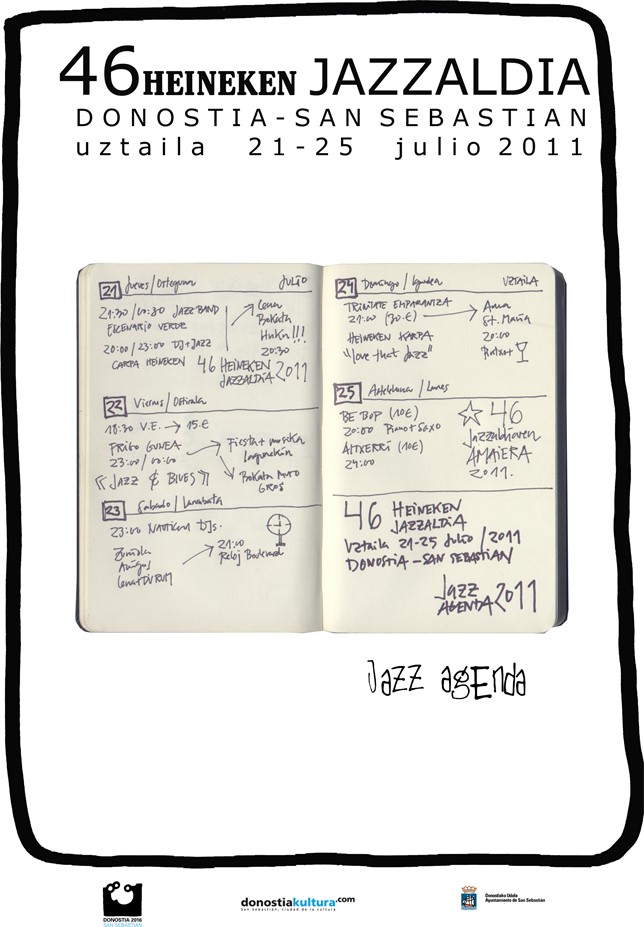 46 HEINEKEN JAZZALDIA
DONOSTIA-SAN SEBASTIAN
uztaila 21-25 julio 2011
21 Jueves/Osteguna JULIO
21:30/00:30 JAZZ BAND
ESCENARIO VERDE
20:00/23:00 DJ+JAZZ
CARPA HEINEKEN
Cena
Bokata
HuKa!!!
20:30
46 HEINEKEN
JAZZALDIA 2011
22 Viernes/Ostirala
18:30 V.E. → 15€
FRIKO GUNEA
23:00/00:00
"JAZZ & BLUES"
Fiesta + musika
lagunekin
Bokata MURO
GROS
23 Sabado/Larunbata
23:00 NAUTICUM DJs.
Zurriola
Amigos
Cena+DURUM
21:00
Reloj Boulevard
24 Domingo/Igandea UZTAILA
TRINITATE ENPARANTZA
21:00 (30€)
HEINEKEN KARPA
"love that Jazz"
Ama
St. Maria
20:00
Pintxo+
25 Astelehena/Lunes
BE BOP (10€)
20:00 Piano+Saxo
ALTXERRI (10€)
24:00
46
Jazzaldiaren
AMAIERA
2011.
46 HEINEKEN
JAZZALDIA
Uztaila 21-25 Julio/2011
DONOSTIA-SAN SEBASTIAN
JAZZ
AGENDA 2011
Jazz agEnda
DONOSTIA 2016
SAN SEBASTIAN
donostiakultura.com
San Sebastián, ciudad de la cultura
Donostiako Udala
Ayuntamiento de San Sebastián